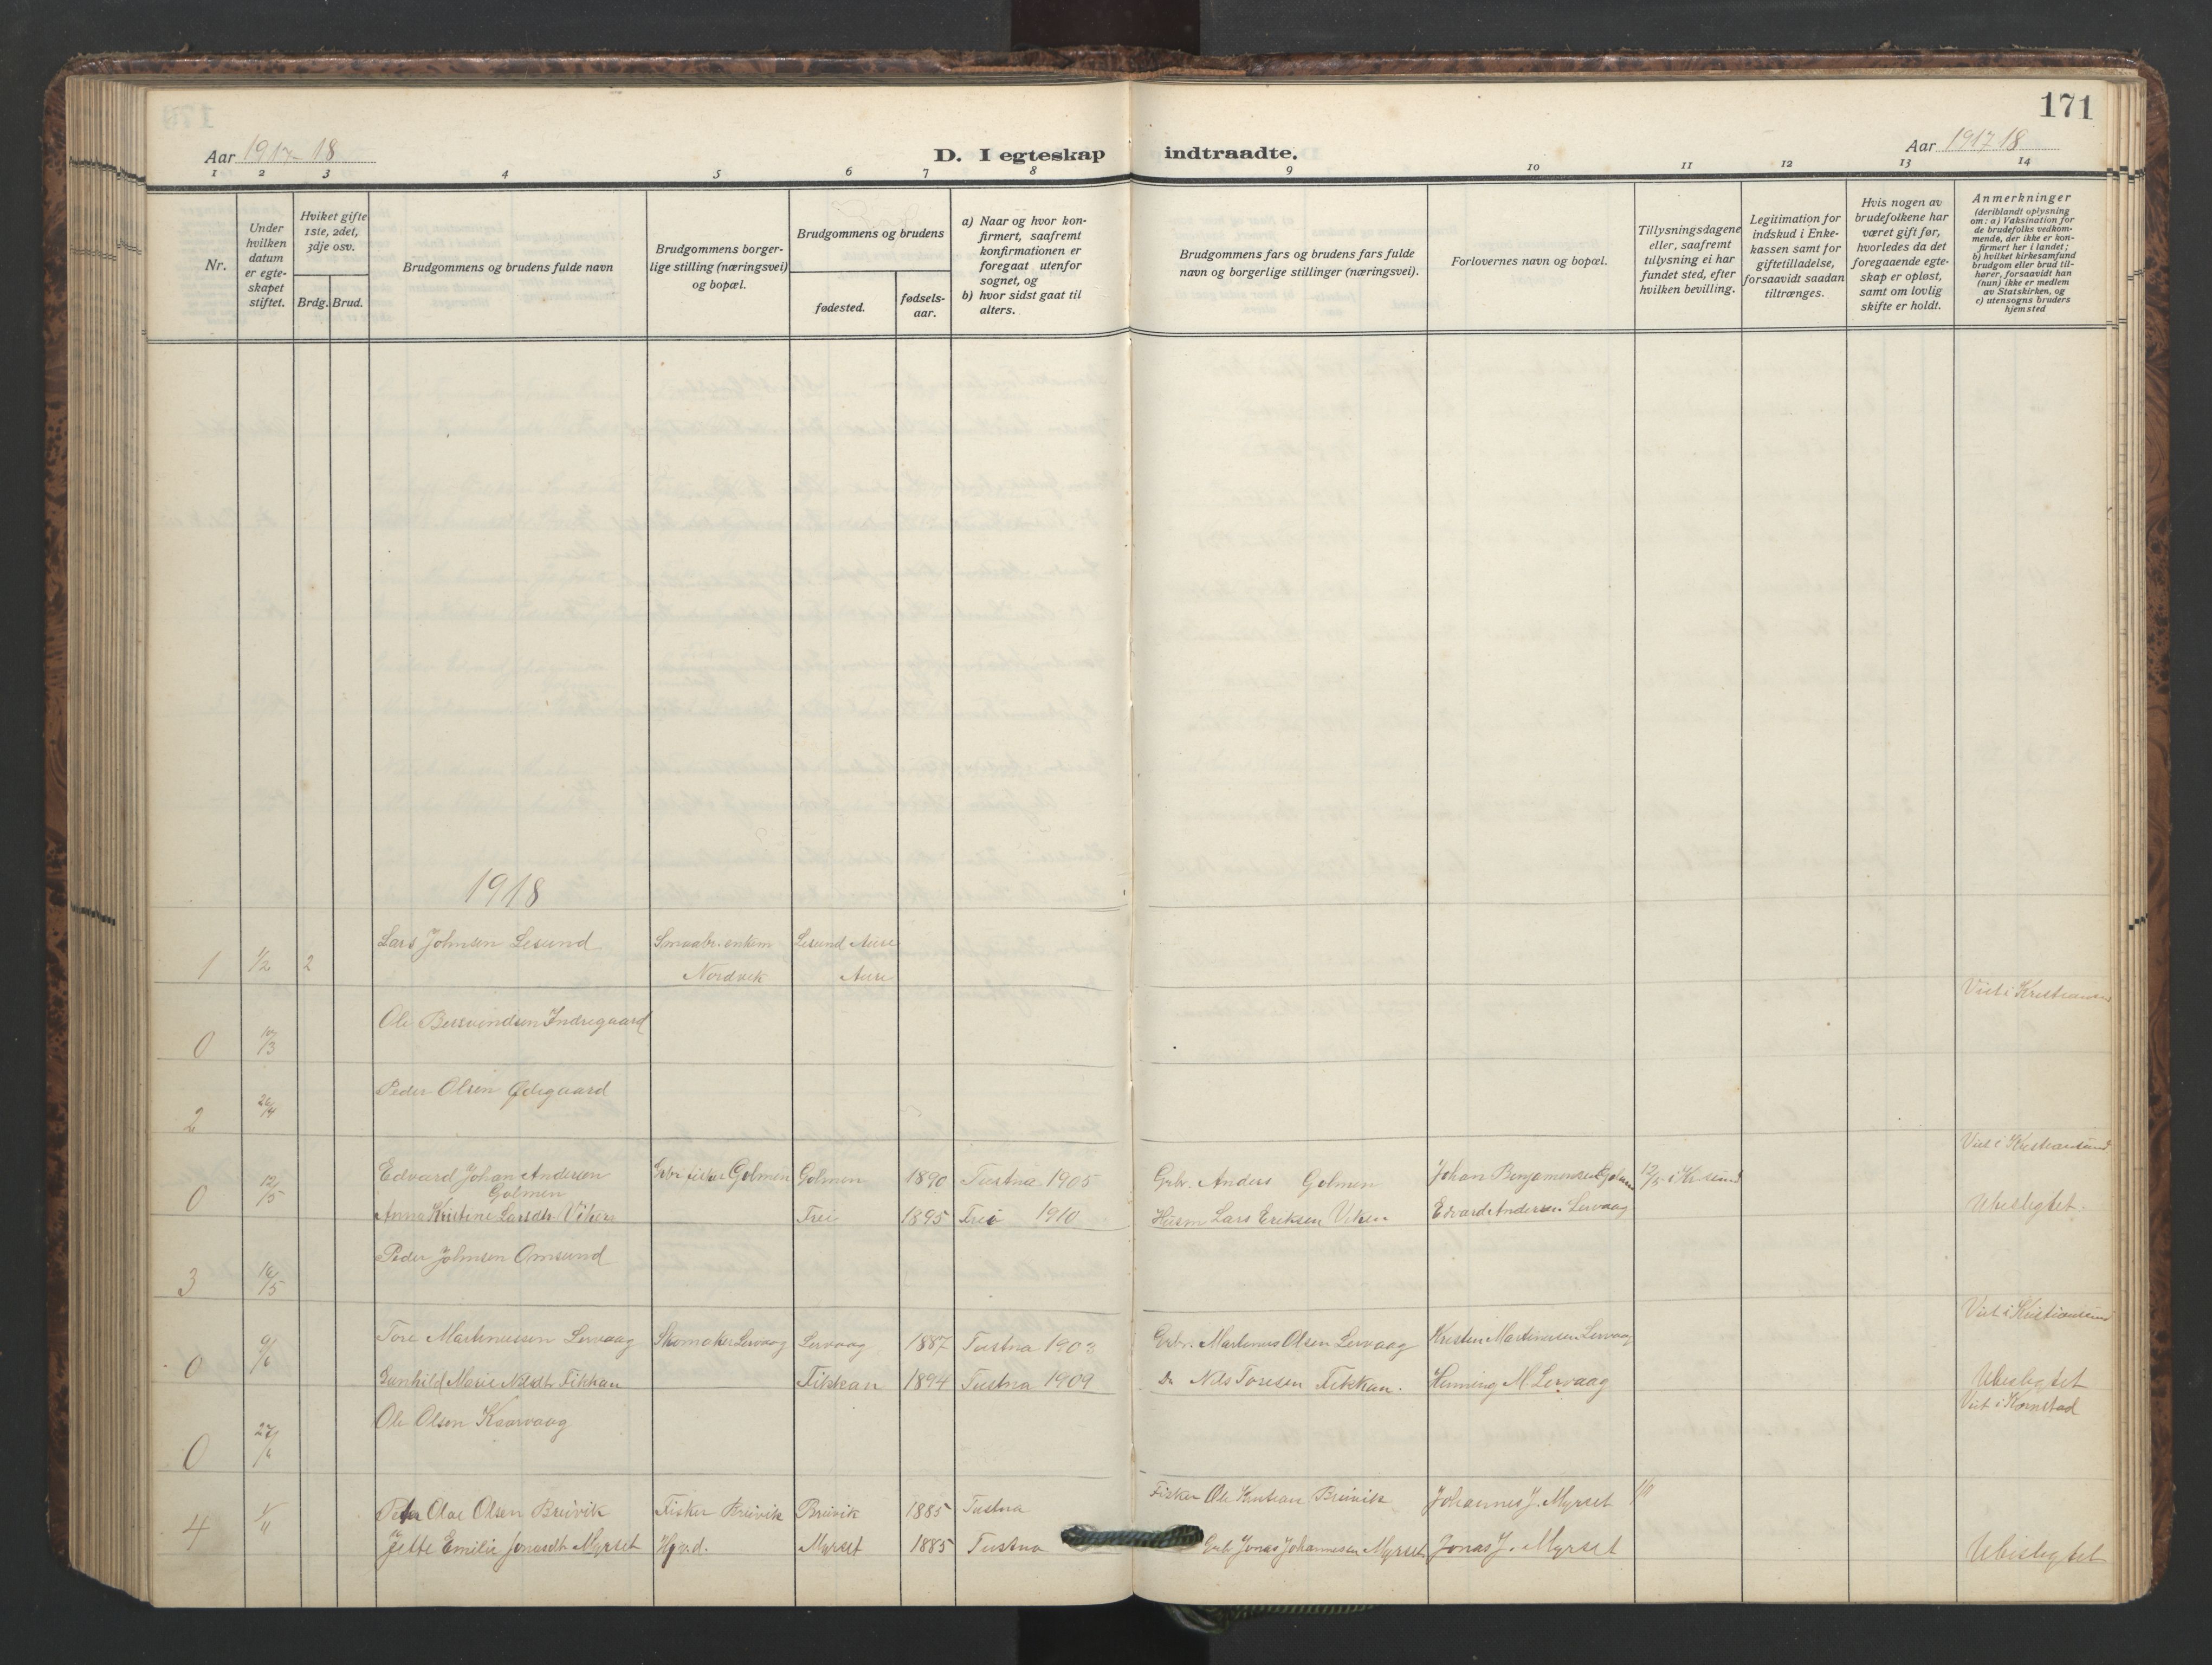 171
Aar 1917-18
D. I egteskap indtraadte.
Aar 1917 18
1 2 3 4 5 6 7 8 9 10 11 12 13 14
Nr.
Under
hvilken
datum
er egte-
skapet
stiftet.
Hvilket gifte
1ste, 2det,
3dje osv.
Brdg. Brud.
Brudgommens og brudens fulde navn
Brudgommens borger-
lige stilling (næringsvei)
og bopæl.
Brudgommens og brudens
fødested.
fødsels-
aar.
a) Naar og hvor kon-
firmert, saafremt
konfirmationen er
foregaat utenfor
sognet, og
b) hvor sidst gaat til
alters.
Brudgommens fars og brudens fars fulde
navn og borgerlige stillinger (næringsvei).
Forlovernes navn og bopæl.
Tillysningsdagene
eller, saafremt
tillysning ei har
fundet sted, efter
hvilken bevilling.
Legitimation for
indskud i Enke-
kassen samt for
giftetilladelse,
forsaavidt saadan
tiltrænges.
Hvis nogen av
brudefolkene har
været gift før,
hvorledes da det
foregaaende egte-
skap er opløst,
samt om lovlig
skifte er holdt.
Anmerkninger
(deriblandt oplysning
om: a) Vaksination for
de brudefolks vedkom-
mende, der ikke er kon-
firmert her i landet;
b) hvilket kirkesamfund
brudgom eller brud til-
hører, forsaavidt han
(hun) ikke er medlem
av Statskirken, og
c) utensogns bruders
hjemsted
1918
Lars Johnsen Lesund Smaabr. enkem Lesund Aure
1 1/2 2 Nordvik Aure
Viet i Kristiansund
Ole Bersvendsen Indregaard
0 10/3
Peder Olsen Ødegaard
2 26/4
Viet i Kristiansund
Edvard Johan Andersen Gbr fisker Golmen Golmen 1890 Tustna 1905 Gbr. Anders Golmen Johan Benjaminsen Golmen 12/5 i Krsund
0 12/5 Golmen
Anna Kristine Larsdtr Viken Frei 1895 Frei 1910 Husm Lars Eriksen Viken Edvard Andersen Lervaag Ubeslegtet.
Peder Johnsen Omsund
3 16/5
Viet i Kristiansund
Tore Martinussen Lervaag Skomaker Lervaag Lervaag 1887 Tustna 1903 Gbr. Martinus Olsen Lervaag Kristen Martinusen Lervaag
0 9/6
Gunhild Marie Nilsdtr Fikkan Fikkan 1894 Tustna 1909 Do Nils Toresen Fikkan. Henning M. Lervaag Ubeslegtet
Viet i Kornstad
Ole Olsen Kaarvaag
0 27/6
Peter Olae Olsen Breivik Fisker Breivik Breivik 1885 Tustna Fisker Ole Kristian Breivik Johannes J. Myrset
4 1/11
Jette Emilie Jonasdtr Myrset Myrset 1885 Tustna Gbr. Jonas Johannesen Myrset Jonas J. Myrset Ubeslegtet